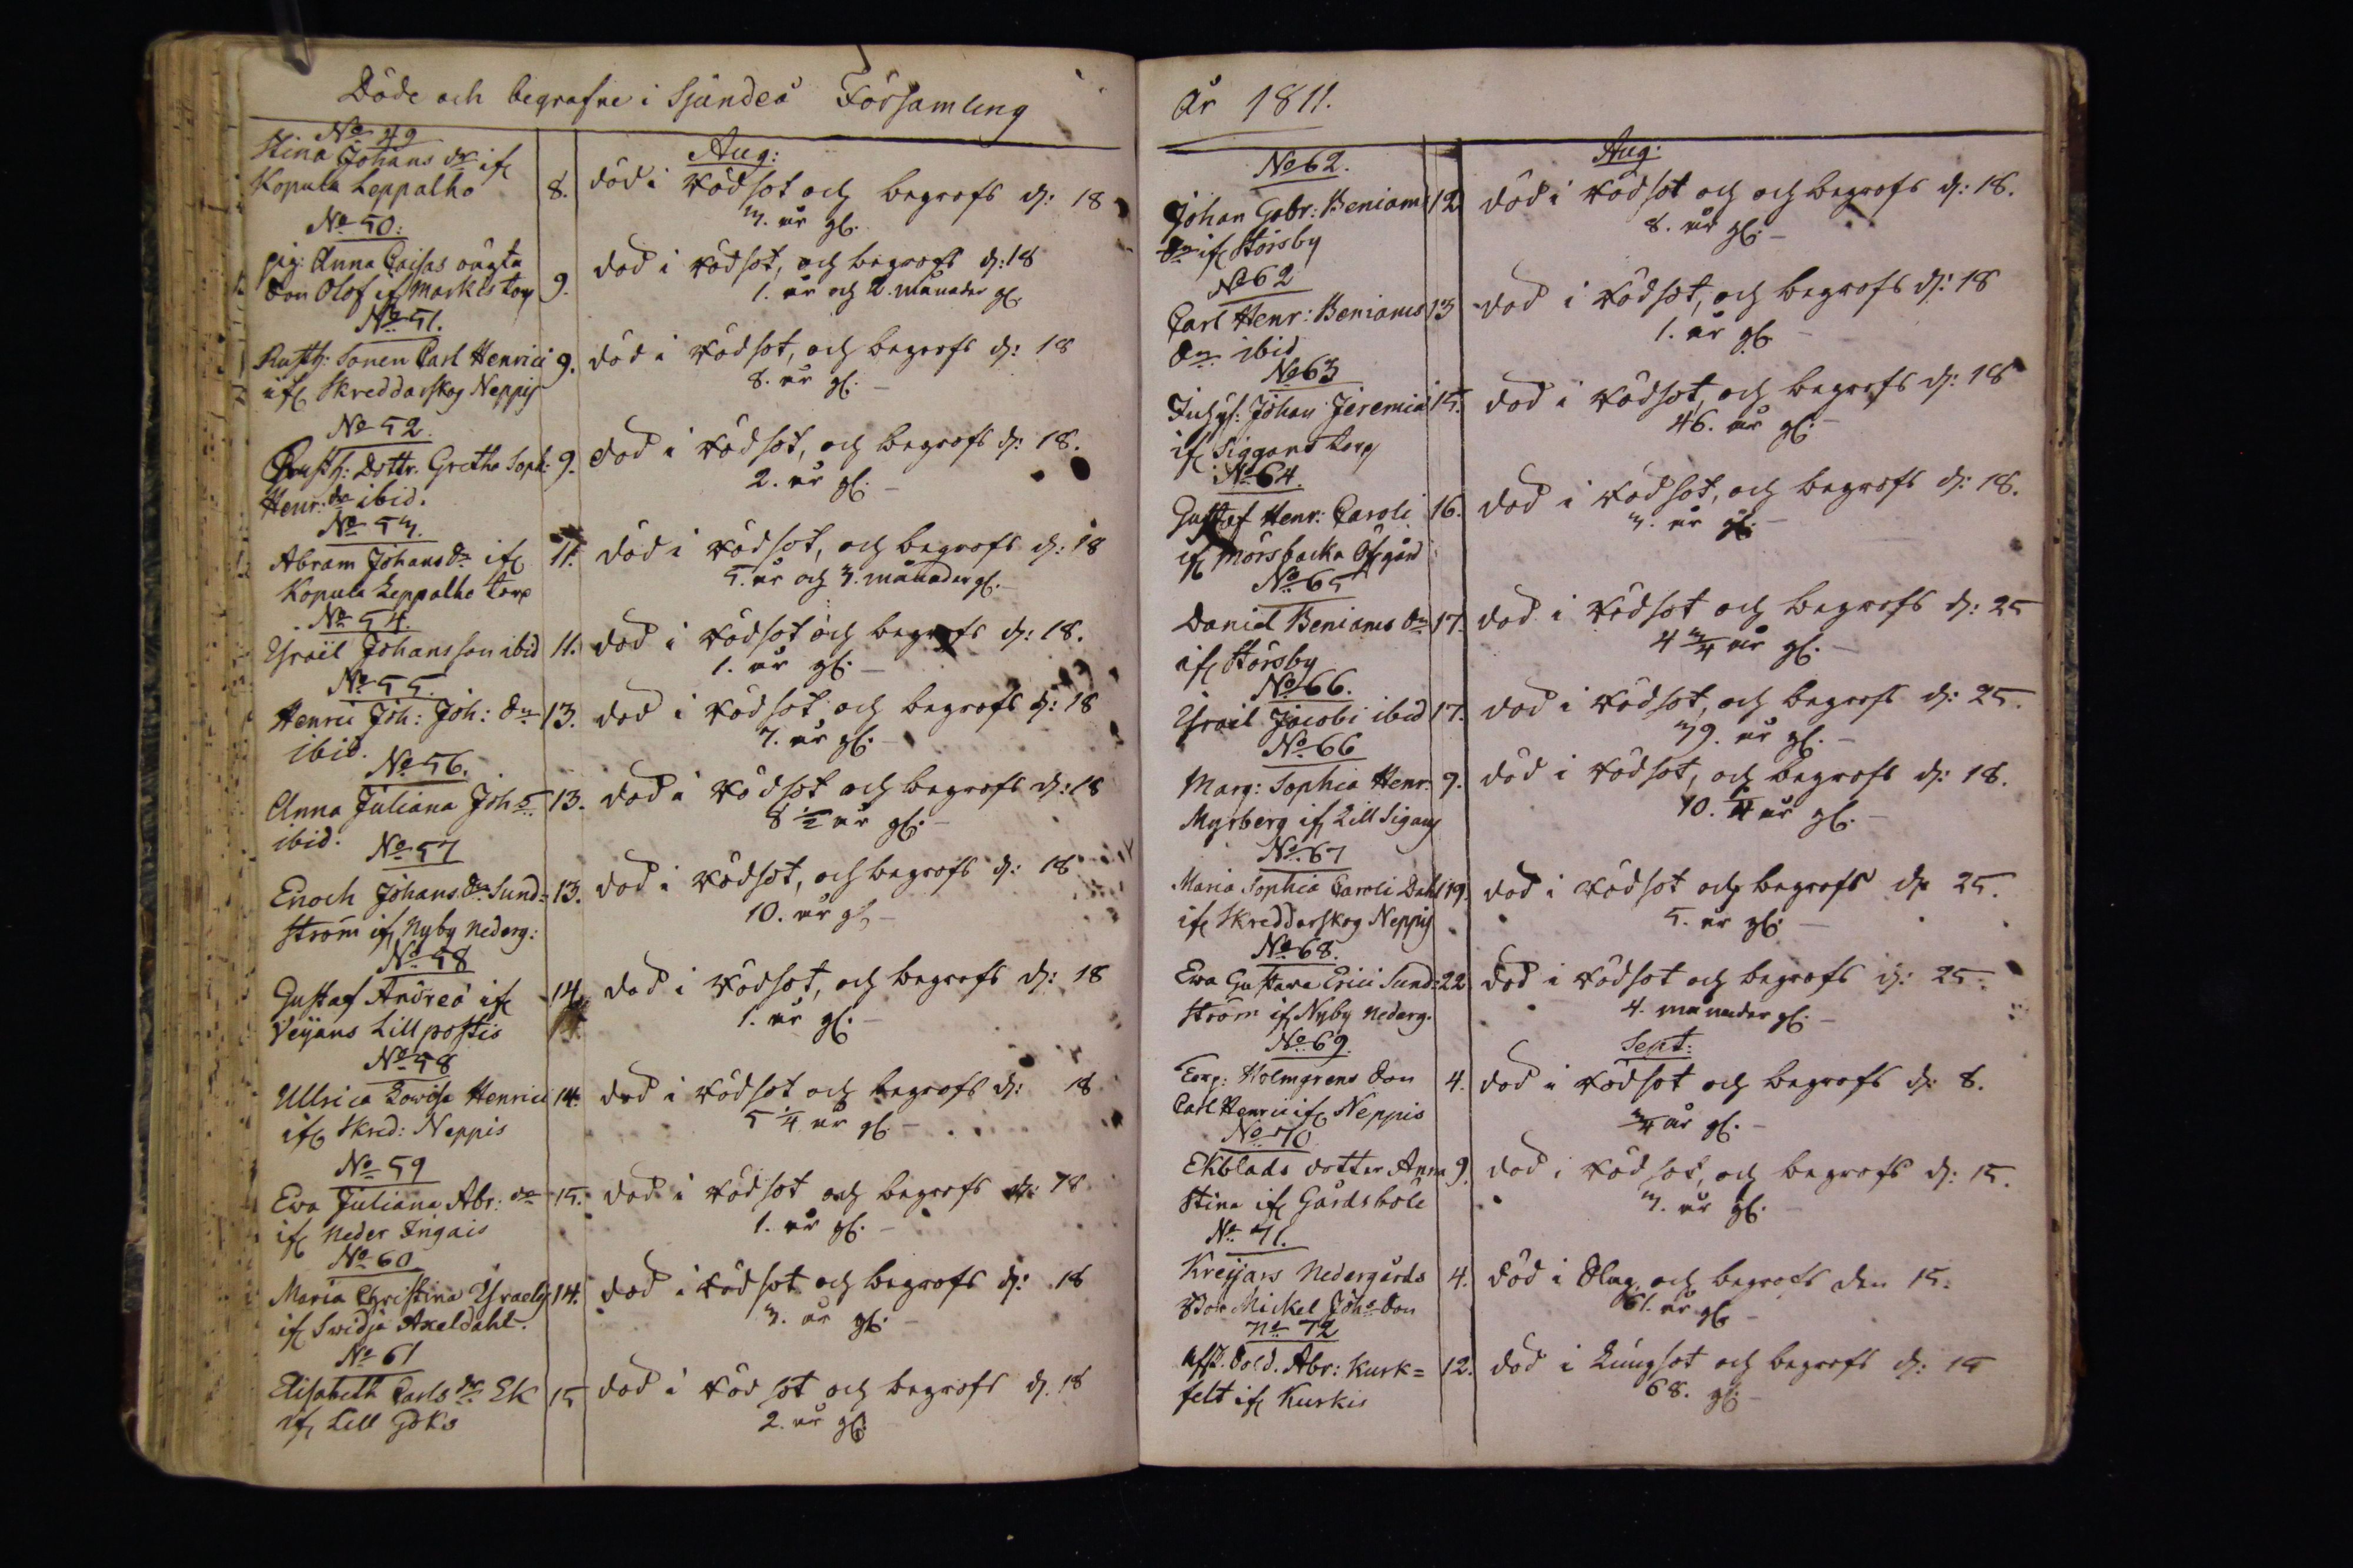 Döde och begrafne i Sjundeå Församling
No 49
Stina Johans dr if
Kopula Leppalho
8.
Aug:
död i rödsot och begrofs d: 18
3. år gl.
No 50:
pig: Anna Caisas oägta
Son Olof if Markis torp
9.
död i rödsot, och begrofs d: 18
1. år och 2. månader gl.
No 51.
Rusth: Sonen Carl Henrici
if Skreddarskog Neppis
9.
död i rödsot, och begrofs d: 18
8. år gl. –
No 52.
Rusth: Dottr. Gretha Soph:
Henr: dr ibid.
9.
död i rödsot, och begrofs d: 18.
2. år gl. –
No 53.
Abram Johans Sn if
Kopula Leppalho torp
11.
död i rödsot, och begrofs d: 18
5. år och 3. månader gl. –
No 54.
Israel Johansson ibid
11.
död i rödsot och begrofs d: 18.
1. år gl. –
No 55.
Henric Joh: Joh: Sn
ibid.
13.
död i rödsot och begrofs d: 18
7. år gl. –
No 56.
Anna Juliana Joh
ibid.
13.
död i rödsot och begrofs d: 18
8 1/2 år gl. –
No 57
Enoch Johans Sn Sund-
ström if Nyby nederg:
13.
död i rödsot, och begrofs d: 18
10. år gl –
No 58
Gustaf Andreæ if
Veijans Lill postis
14.
död i rödsot, och begrofs d: 18
1. år gl. –
No 58
Ullrica Lowisa Henrici
if Skred: Neppis
14.
död i rödsot och begrofs d: 18
5 1/4 år gl. –
No 59
Ewa Juliana Abr: dr
if neder Ingais
15.
död i rödsot och begrofs d: 18
1. år gl. –
No 60
Maria Christina Israels
if Swidja Axeldahl.
14.
död i rödsot och begrofs d: 18
3. år gl. –
No 61
Elisabeth Carls dr Ek
if Lill Göks
15
död i rödsot och begrofs d. 18
2. år gl.
År 1811.
No 62.
Johan Gabr: Beniam
Sn if Störsby
12
Aug:
död i rödsot och och begrofs d: 18.
8. år gl. –
No 62
Carl Henr: Beniams
Sn ibid
13
död i rödsot, och begrofs d: 18
1. år gl. –
No 63
Inhys: Johan Jeremiæ
if Siggans torp
15.
död i rödsot, och begrofs d: 18
46. år gl. –
No 64.
Gustaf Henr: Caroli
if Mörsbacka Öfgård
16.
död i rödsot, och begrofs d: 18.
3. år gl. –
No 65
Daniel Beniams Sn
if Störsby
17.
död i rödsot och begrofs d: 25
4 3/4 år gl. –
No 66.
Israel Jacobi ibid
17.
död i rödsot, och begrofs d: 25.
39. år gl. –
No 66
Marg: Sophia Henr.
Myrberg if Lill Sigans
9.
död i rödsot, och begrofs d: 18.
10. 1/4 år gl. –
No 67
Maria Sophia Caroli Dahl
if Skreddarskog Neppis
19.
död i rödsot och begrofs d: 25.
5. år gl: –
No 68.
Ewa Gustava Erici Sund-
ström if Nyby nederg.
22
död i rödsot och begrofs d: 25.
4. månader gl. –
No 69.
Torp: Holmgrens Son
Carl Henric if Neppis
4.
Sept:
död i rödsot och begrofs d: 8.
3/4 år gl. –
No 70
Ekblads dotter Anna
Stina if Gårdsböle
9.
död i rödsot, och begrofs d: 15.
3. år gl. –
No 71.
Kreijars Nedergårds
Bon Mickel Johs Son
4.
död i Slag och begrofs den 15.
61. år gl –
No 72
Afsk. Sold. Abr: Kurk=
felt if Kurkis
12.
död i Lungsot och begrofs d: 15
68. gl: –